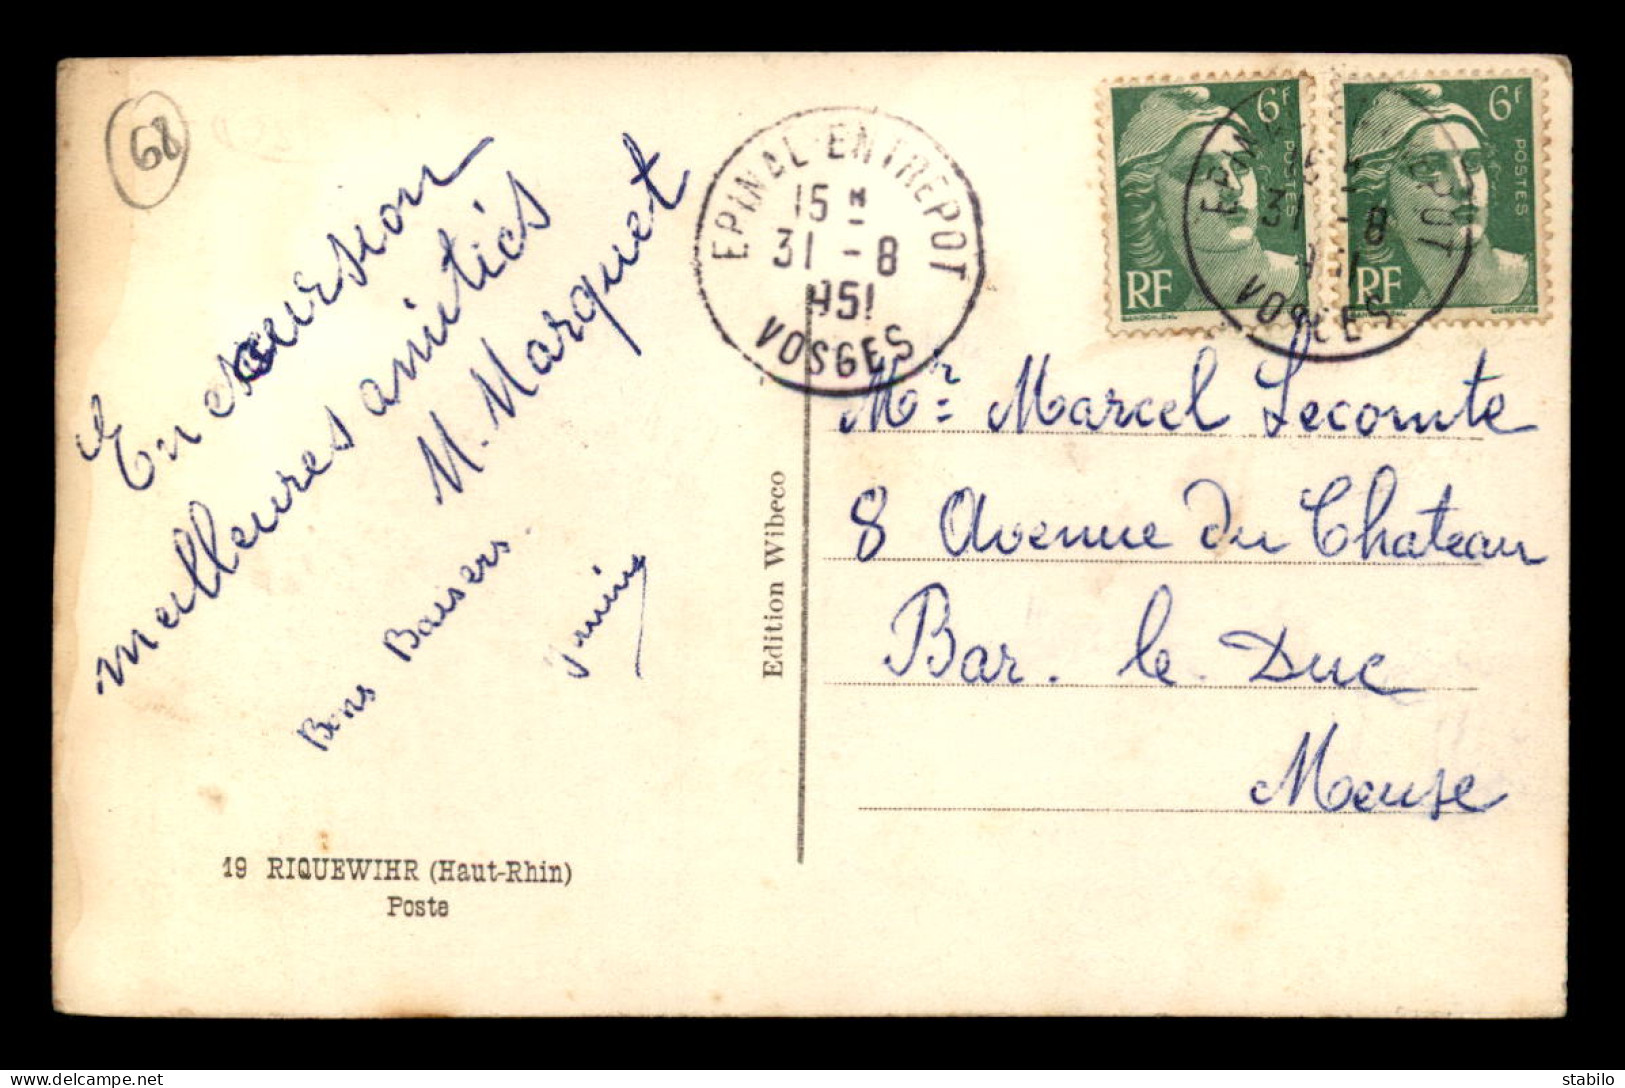 68
En excursion
meilleures amitiés
M. Marquet
Bons Baisers.
19 RIQUEWIHR (Haut-Rhin)
Poste
Edition Wibeco
EPINAL-ENTREPOT
15 H
31 - 8
1951
VOSGES
6F
POSTES
RF
6F
POSTES
RF
31 - 8
VOSGES
Mr Marcel Lecomte
8 Avenue du Chateau
Bar. le. Duc
Meuse
stabilo